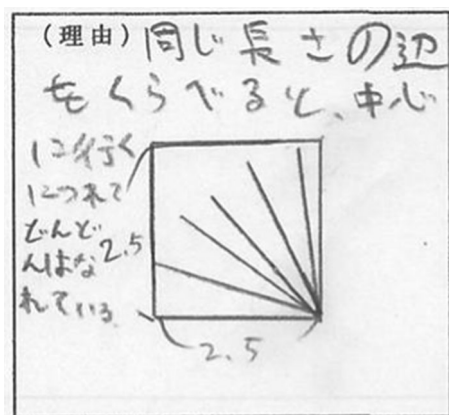 (理由) 同じ長さの辺
をくらべると、中心
に行く
につれて
どんど
んはな
れている。
2.5
2.5